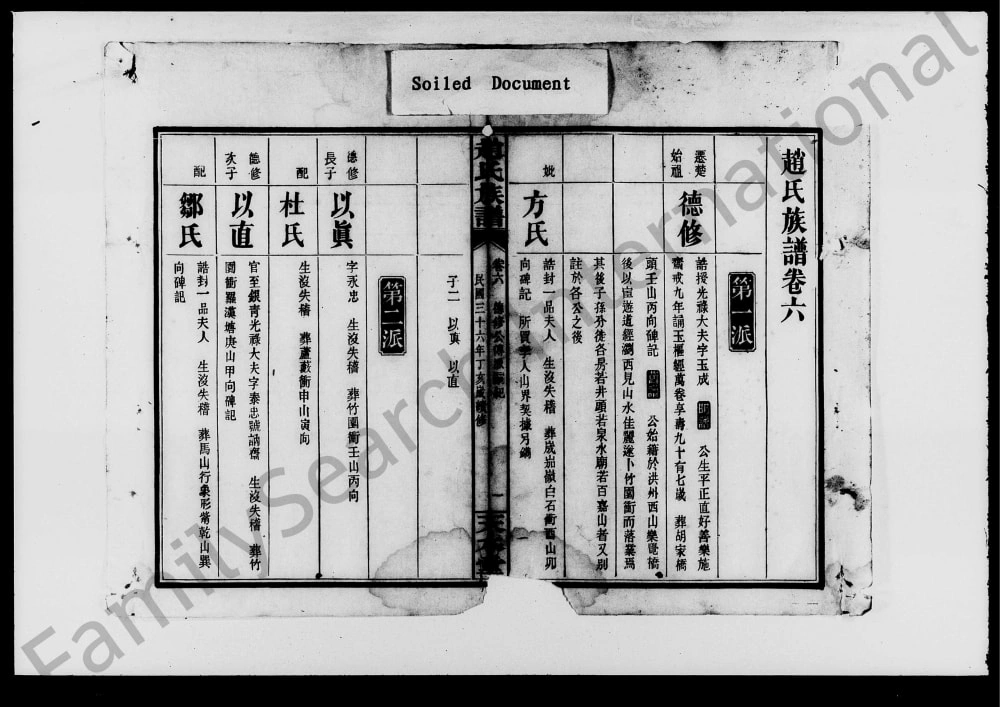 Soiled Document
趙氏族譜卷六
第一派
遷楚
始祖
德修
誥授光祿大夫字玉成 公生平正直好善樂施
齋戒九年誦玉樞經萬卷享壽九十有七歲 葬胡家橋
頭壬山丙向碑記 公始籍於洪州西山樂
後以宦遊道經瀏西見山水佳麗遂卜竹園衝而落業焉
其後子孫分徙各房若井頭若泉水廟若百嘉山者又別
註於各公之後
妣
方氏
誥封一品夫人 生沒失稽 葬 白石衝酉山卯
向碑記 所買李人山界契據另鐫
子二 以眞 以直
趙氏族譜
卷六 德修公
民國三十六年丁亥歲續修
一
第二派
德修
長子
以眞
字永忠 生沒失稽 葬竹園衝壬山丙向
配
杜氏
生沒失稽 葬蘆 衝申山寅向
德修
次子
以直
官至銀青光祿大夫字泰忠號誦齋 生沒失稽 葬竹
園衝羅漢 庚山甲向碑記
配
鄒氏
誥封一品夫人 生沒失稽 葬馬山行象形 乾山巽
向碑記
FamilySearch International